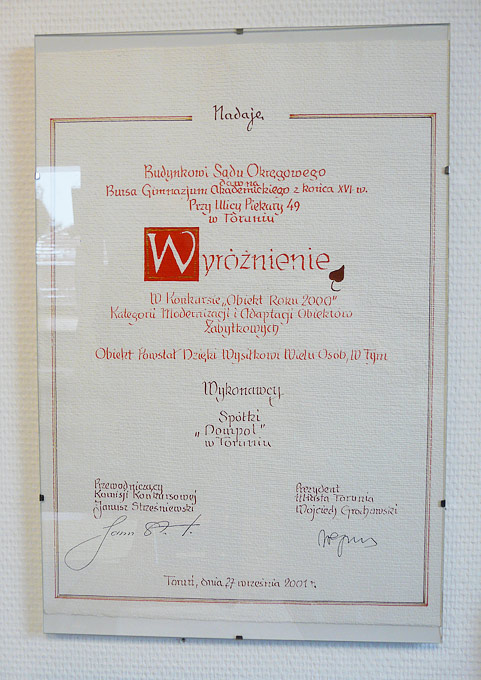 Nadaje
Budynkowi Sądu Okręgowego
dawna
Bursa Gimnazjum Akademickiego z końca XVI w.
Przy Ulicy Piekary 49
w Toruniu
Wyróżnienie
W Konkursie „Obiekt Roku 2000"
Kategorii Modernizacji i Adaptacji Obiektów
Zabytkowych
Obiekt Powstał Dzięki Wysiłkowi Wielu Osób, W Tym
Wykonawcy
Spółki
„Dompol"
w Toruniu
Przewodniczący
Komisji Konkursowej
Janusz Streśniewski
Prezydent
Miasta Torunia
Wojciech Grochowski
Toruń, dnia 27 września 2001 r.